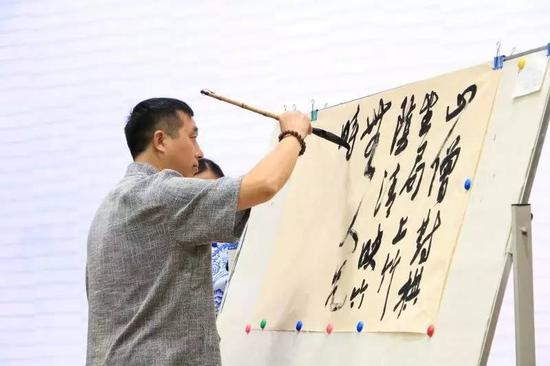 山僧對棋
坐局上竹
陰清映竹
無人見
時